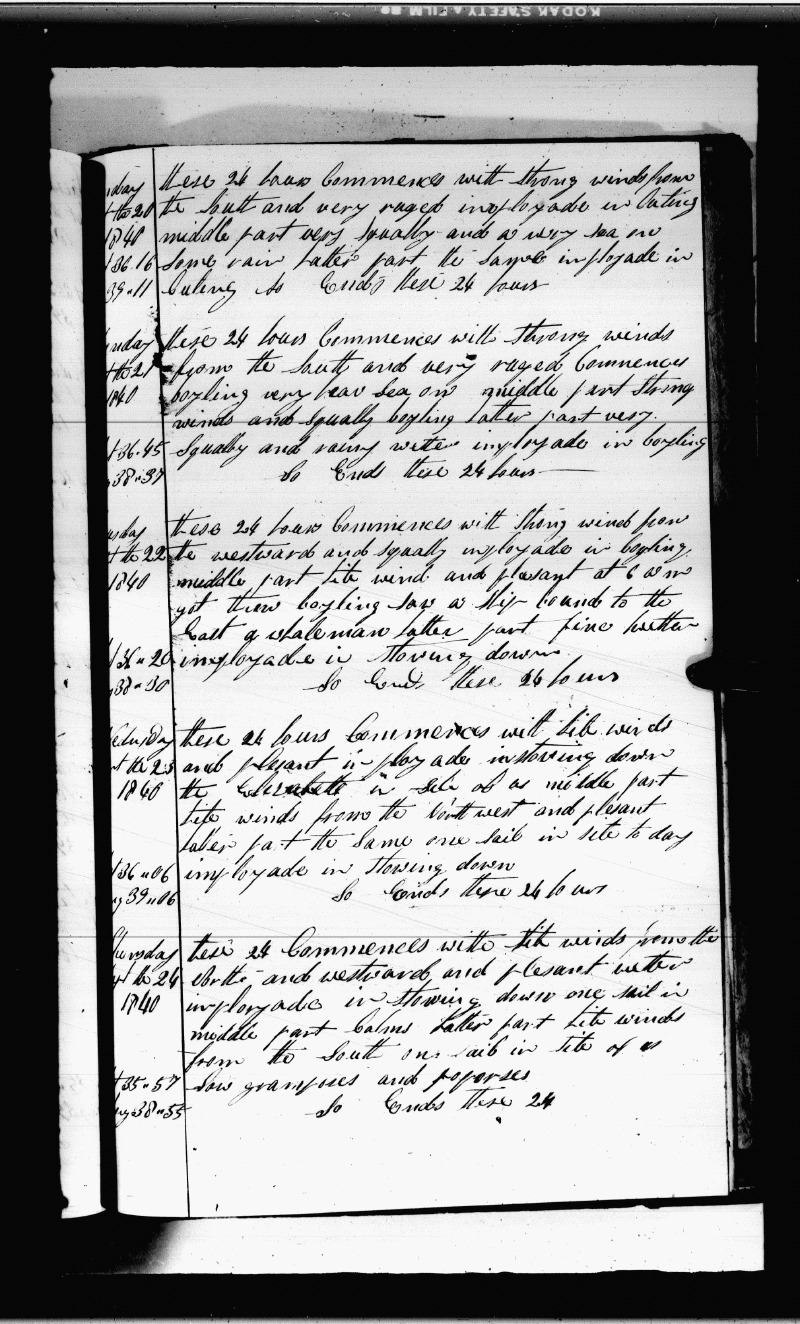 KODAK SAFETY FILM
these 24 hours Commences with strong winds from
the South and very ruged imployade in Cuting
middle part very squally and a very sea on
some rain Latter part the same imployade in
Cuting So Ends these 24 hours
nday
the 20
1840
36-16
39-11
these 24 hours Commences with strong winds
from the South and very ruged Commences
boyling very heav sea on middle part strong
winds and squally boyling latter part very
squaly and rainy wether imployade in boyling
So Ends these 24 hours
nday
the 21
1840
36-45
38-37
these 24 hours Commences with strong wind from
the westward and squally imployade in boyling
middle part lite wind and plesant at 6 a m
got threw boyling saw a ship bound to the
East a whaleman latter part fine wether
imployade in stowing down
So Ends these 24 hours
sday
the 22
1840
36-20
38-30
these 24 hours Commences with lite winds
and plesant imployade in stowing down
the Elizabeth in site of us middle part
lite winds from the northwest and plesant
latter part the same one sail in site to day
imployade in stowing down
So Ends these 24 hours
ednesday
the 23
1840
36-06
39-06
these 24 Commences with lite winds from the
north and westward and plesant wether
imployade in stowing down one sail in
middle part Calms latter part lite winds
from the South one sail in site of us
Saw grampuses and poporses
So Ends these 24
hursday
the 24
1840
35-57
38-55